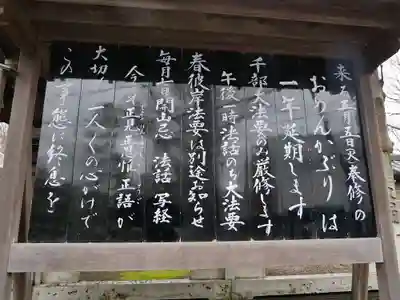 来る五月五日奉修の
おめんかぶりは
一年延期します
千部大法要のみ厳修します
午後一時 法話のち大法要
春彼岸法要は別途お知らせ
毎月七日 開山忌 法話 写経
今こそ正見 正思惟 正語が
大切 一人々々の心がけで
この事態に終息を